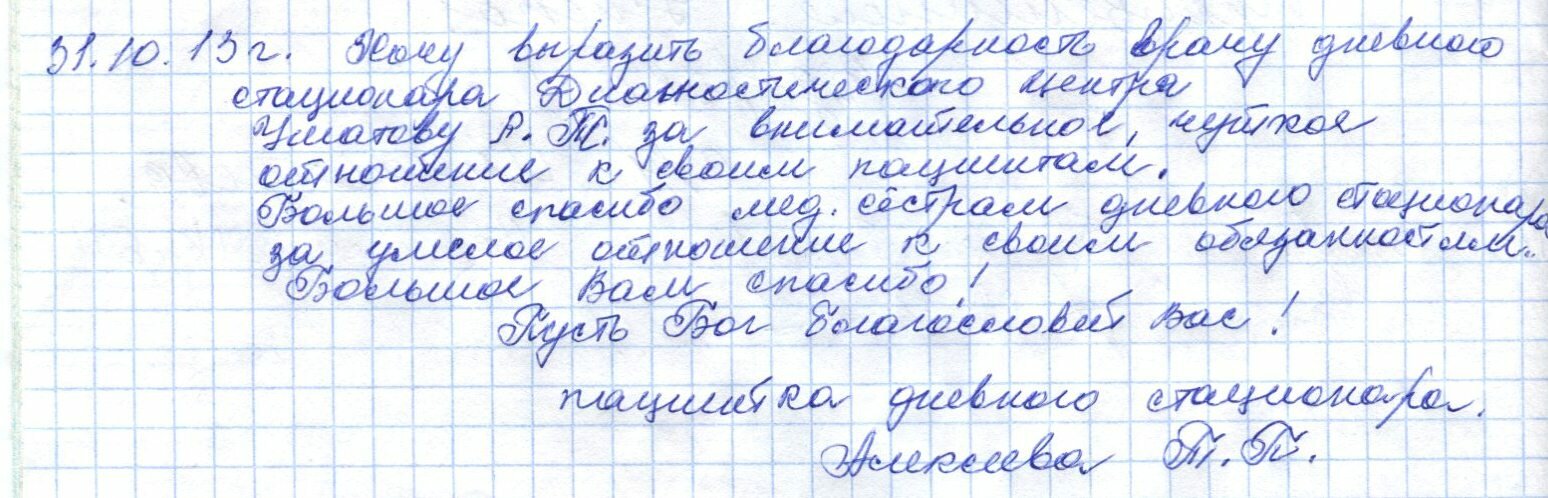 31.10.13г. Хочу выразить благодарность врачу дневного
стационара Диагностического центра
Уматову А. Т. за внимательное, чуткое
отношение к своим пациентам.
Большое спасибо мед. сёстрам дневного стационара
за умелое отношение к своим обязанностям.
Большое Вам спасибо!
Пусть Бог благословит Вас!
пациентка дневного стационара.
Алексеева Т. П.